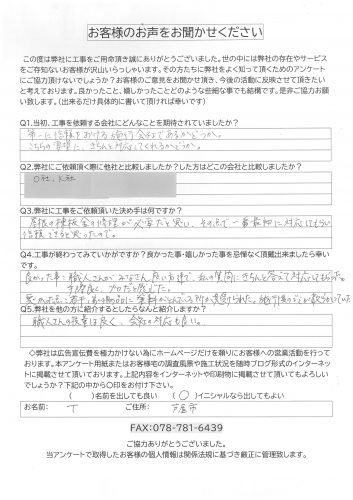 お客様のお声をお聞かせください
この度は弊社に工事をご用命頂き誠にありがとうございました。世の中には弊社の存在やサービス
をご存知ないお客様が沢山いらっしゃいます。その方たちに弊社をよく知って頂くためのアンケート
にご協力頂けないでしょうか？お客様のご意見をお聞かせ頂き、今後の活動に反映させて頂きたい
と考えております。良かったこと、嬉しかったことどのような些細な事でも結構です。是非ご協力お願
い致します。（出来るだけ具体的に書いて頂ければ幸いです）
Q1.当初、工事を依頼する会社にどんなことを期待されていましたか？
第一に信頼をおける施行会社であるかどうか。
こちらの要望に、きちんと対応してくれるかどうか。
Q2.弊社にご依頼頂く際に他社と比較しましたか？した方はどこの会社と比較しましたか？
O社、K社
Q3.弊社に工事をご依頼頂いた決め手は何ですか？
屋根の棟板金の修理が必要だと思い、その点で一番親切に対応してもらい
信頼できると思ったので。
Q4.工事が終わってみていかがですか？良かった事・嬉しかった事を忌憚なく頂戴出来ましたら幸い
です。
良かった事：職人さんがみなさん良い方達で、私の質問にきちんと答えて対応して下さった。
手際良く、プロだと感じた。
Q5.弊社を他の方に紹介するとしたらなんと紹介しますか？
職人さんの技量は良く、会社の対応も良い。
◇弊社は広告宣伝費を極力かけない為にホームページだけを頼りにお客様への営業活動を行って
おります。本アンケート用紙またはお客様宅の調査風景や施工状況を随時ブログ形式のインターネット
に掲載させて頂いております。上記内容をインターネットや印刷物に掲載させて頂いてもよろしい
でしょうか？下記の中から〇印をお付け下さい。
（　）名前を出しても良い（〇）イニシャルなら出してもよい
お名前： T ご住所： 芦屋市
FAX:078-781-6439
ご協力ありがとうございました。
当アンケートで取得したお客様の個人情報は関係法規に基づき厳正に管理致します。